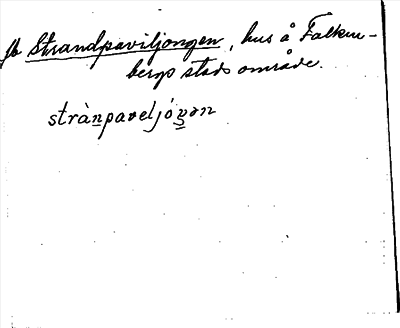 fb Strandpaviljongen, hus å Falken-
bergs stads område.
strànpaveljóŋən